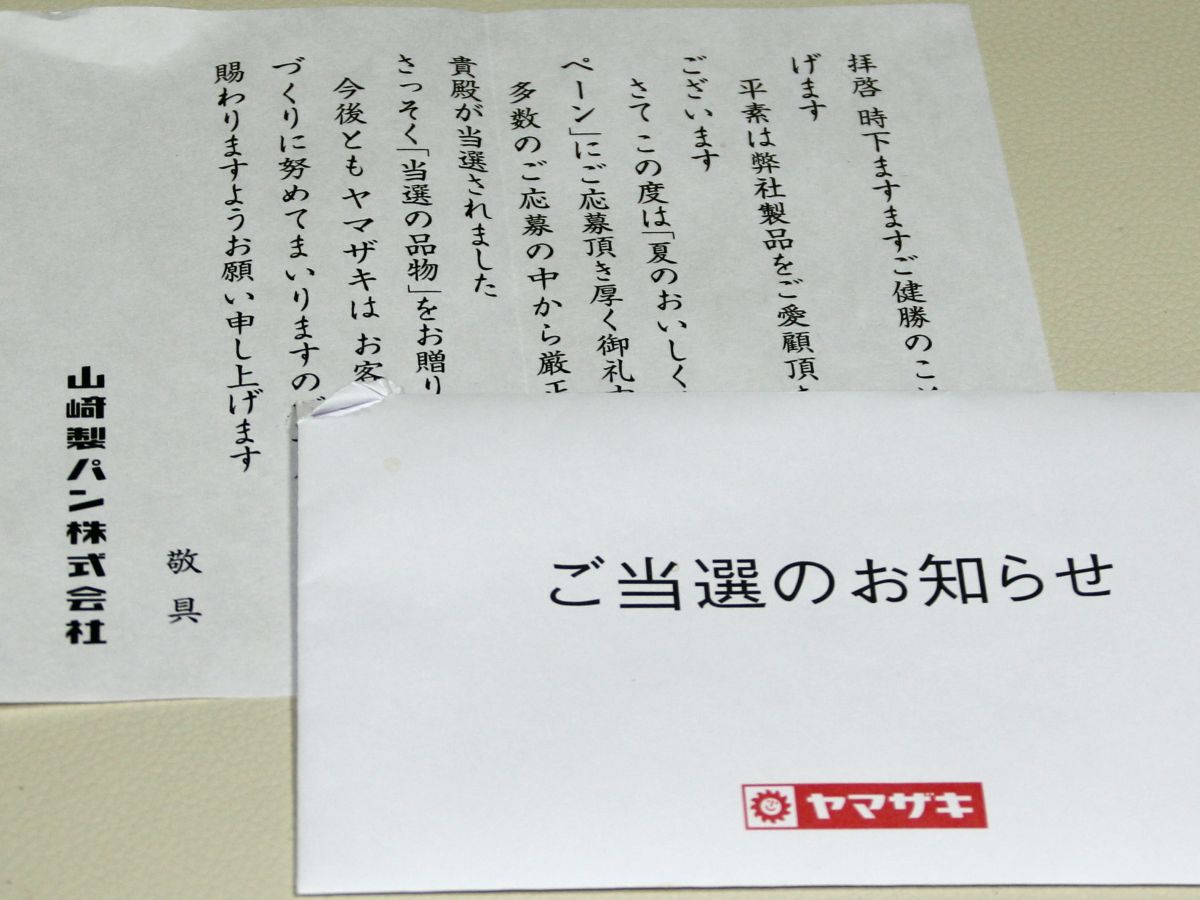 拝啓 時下ますますご健勝のこ
げます
平素は弊社製品をご愛顧頂
ございます
さて この度は「夏のおいしく
ペーン」にご応募頂き厚く御礼
多数のご応募の中から厳正
貴殿が当選されました
さっそく「当選の品物」をお贈り
今後ともヤマザキは お客
づくりに努めてまいりますの
賜わりますようお願い申し上げます
敬具
山崎製パン株式会社
ご当選のお知らせ
ヤマザキ